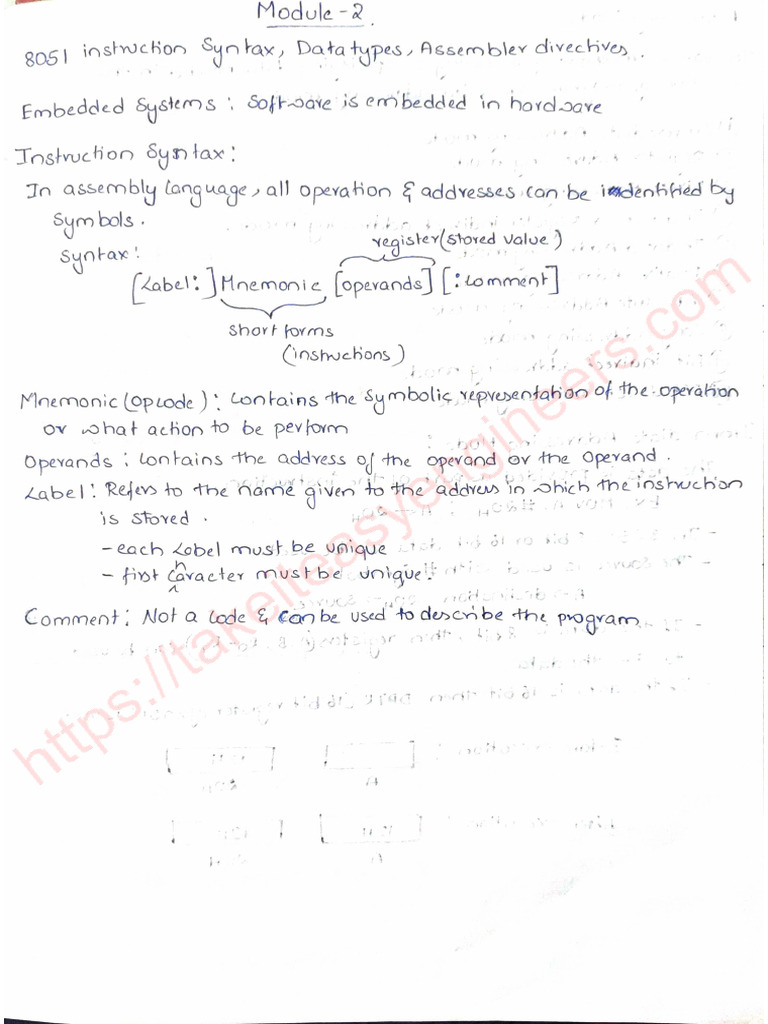 Module-2.
8051 instruction Syntax, Data types, Assembler directives.
Embedded Systems: Software is embedded in hardware
Instruction Syntax:
In assembly language, all operation & addresses can be identified by
symbols.
register (stored value)
Syntax:
[Label:] Mnemonic [operands] [:comment]
short forms
(instructions)
Mnemonic (opcode): Contains the symbolic representation of the operation
or what action to be perform
Operands: Contains the address of the operand or the operand.
Label: Refers to the name given to the address in which the instruction
is stored.
- each Label must be unique
- first character must be unique.
Comment: Not a code & can be used to describe the program
https://takeiteasyengineers.com